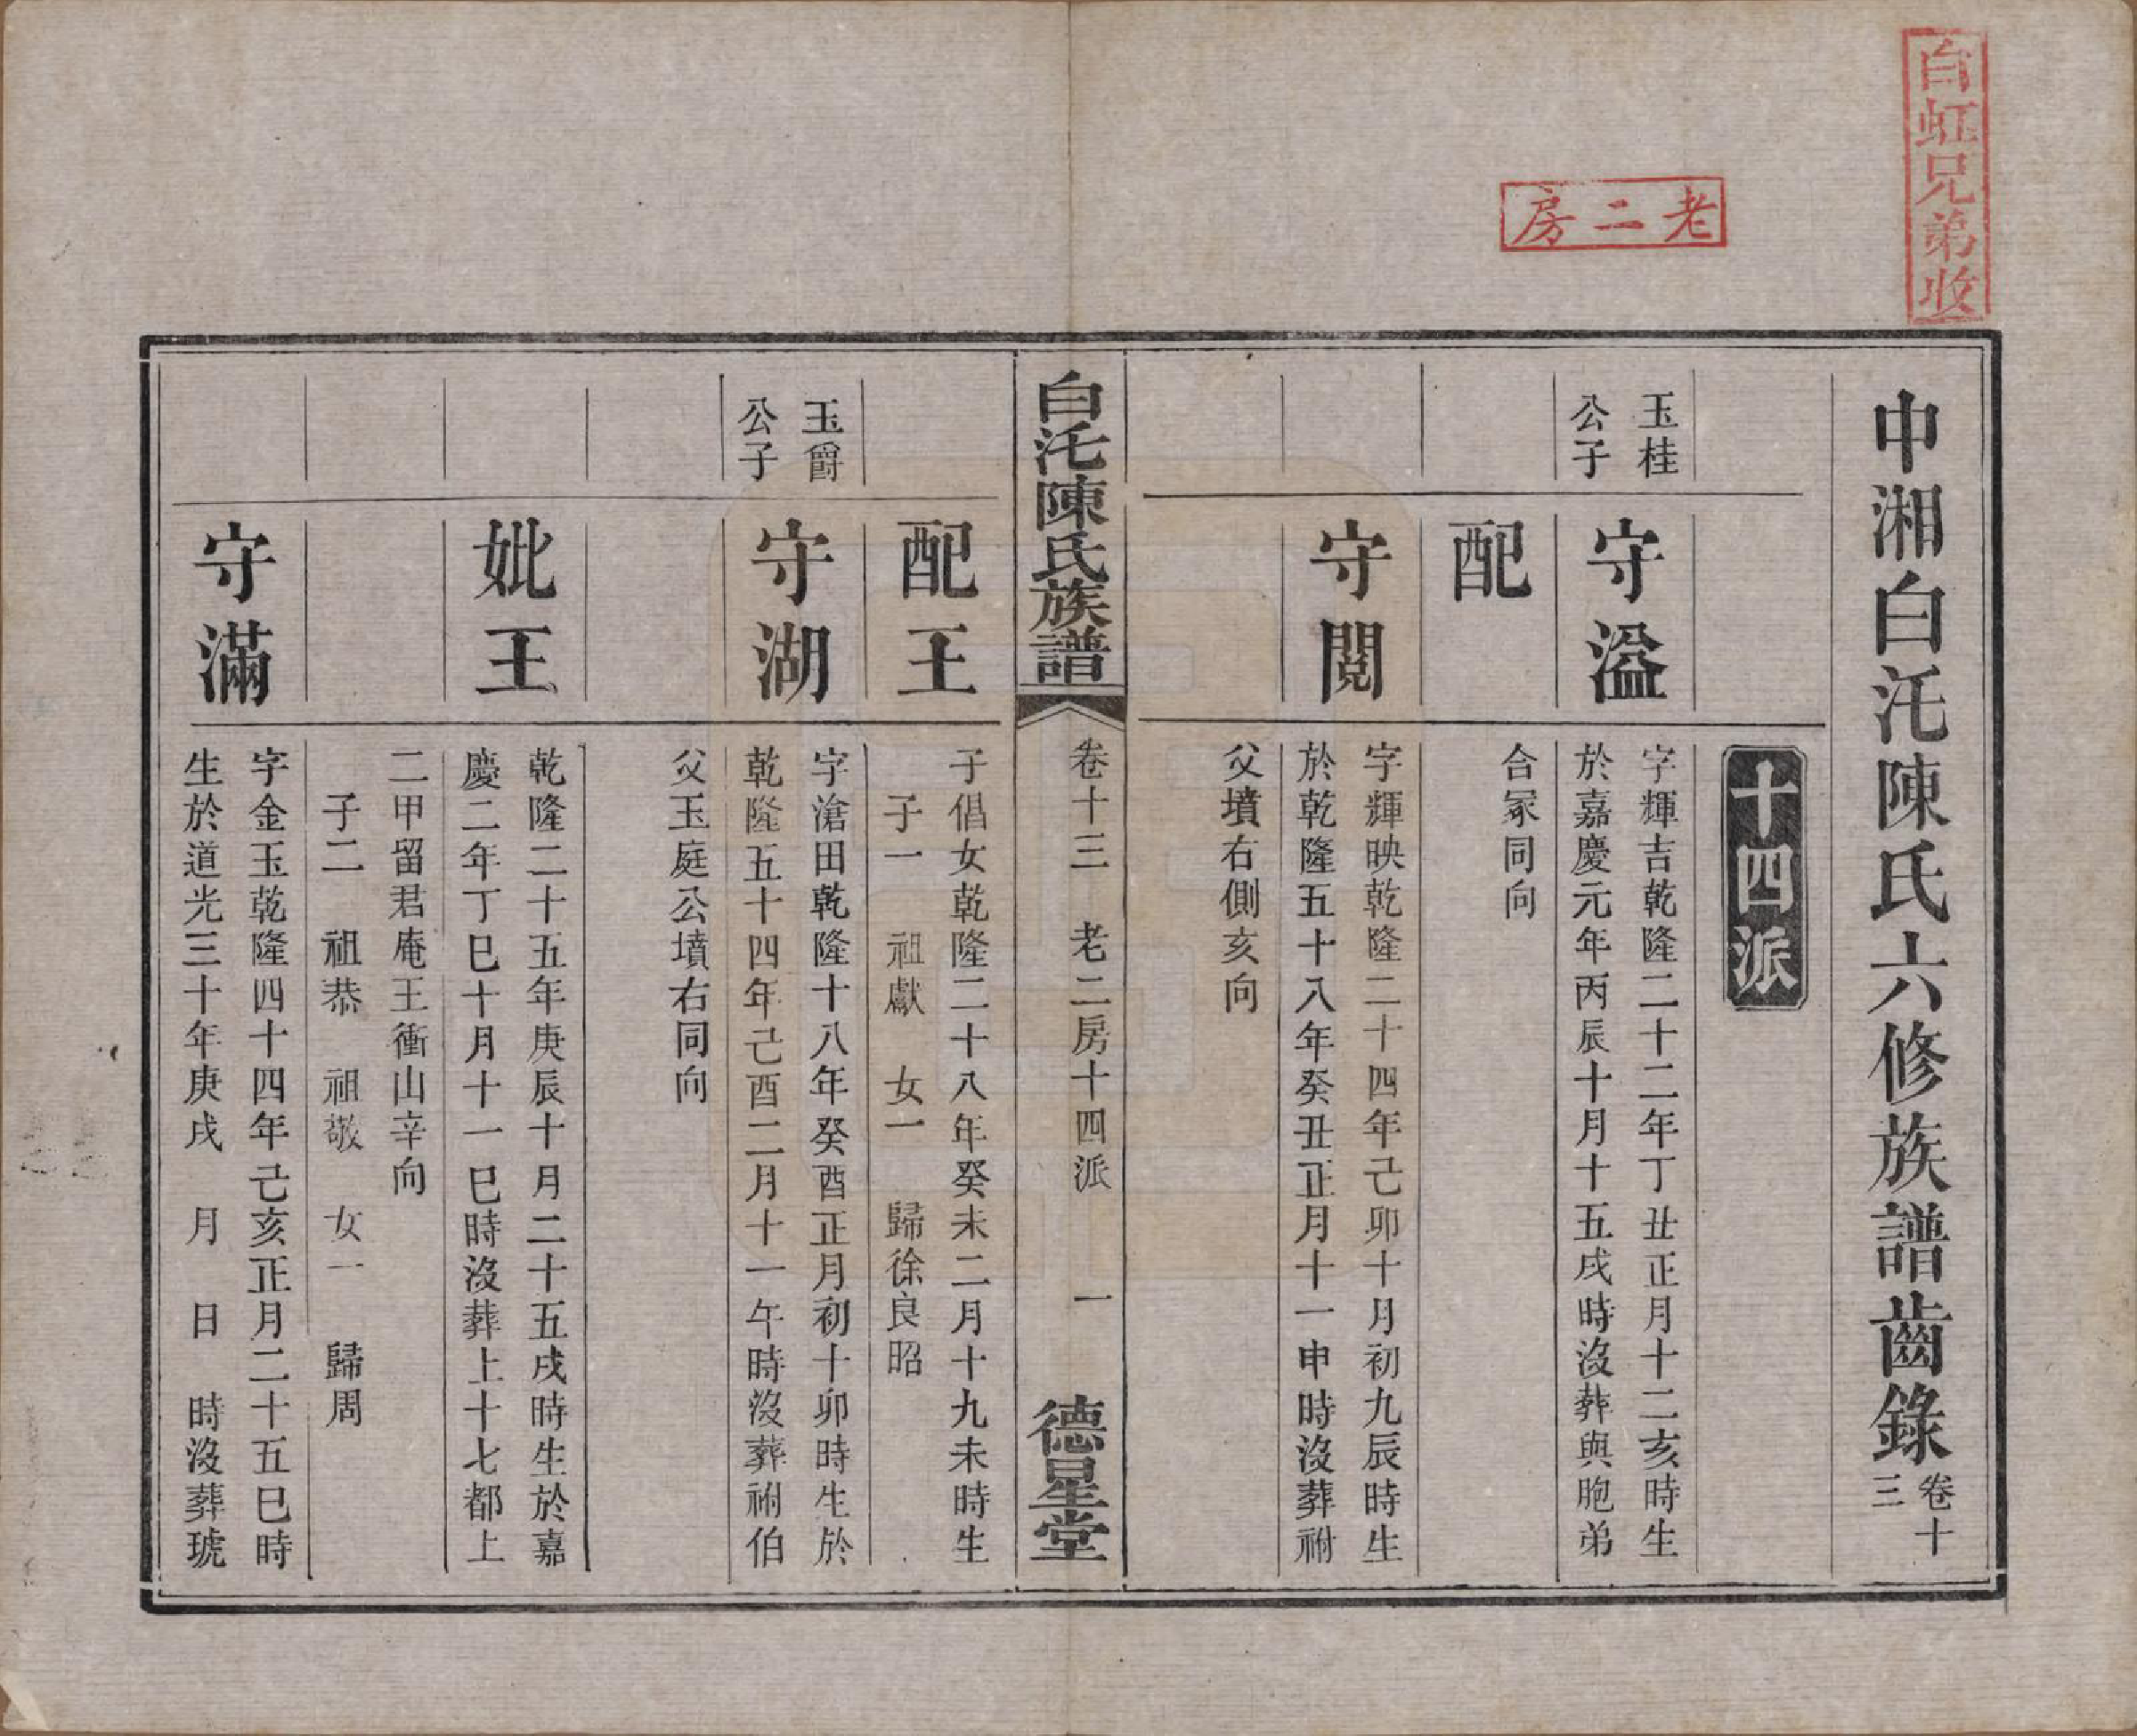 白虹兄弟收
老二房
中湘白沱陳氏六修族譜齒錄
卷十
三
十四派
玉桂
公子
守溢
字輝吉乾隆二十二年丁丑正月十二亥時生
於嘉慶元年丙辰十月十五戌時沒葬與胞弟
配
合冢同向
守閱
字輝映乾隆二十四年己卯十月初九辰時生
於乾隆五十八年癸丑正月十一申時沒葬祔
父墳右側亥向
白沱陳氏族譜
卷十三 老二房十四派 一
德星堂
配王
子倡女乾隆二十八年癸未二月十九未時生
子一 祖獻 女一 歸徐良昭
玉爵
公子
守湖
字滄田乾隆十八年癸酉正月初十卯時生於
乾隆五十四年己酉二月十一午時沒葬祔伯
父玉庭公墳右同向
妣王
乾隆二十五年庚辰十月二十五戌時生於嘉
慶二年丁巳十月十一巳時沒葬上十七都上
二甲留君庵王衝山辛向
子二 祖恭 祖敬 女一 歸周
守滿
字金玉乾隆四十四年己亥正月二十五巳時
生於道光三十年庚戌 月 日 時沒葬琥